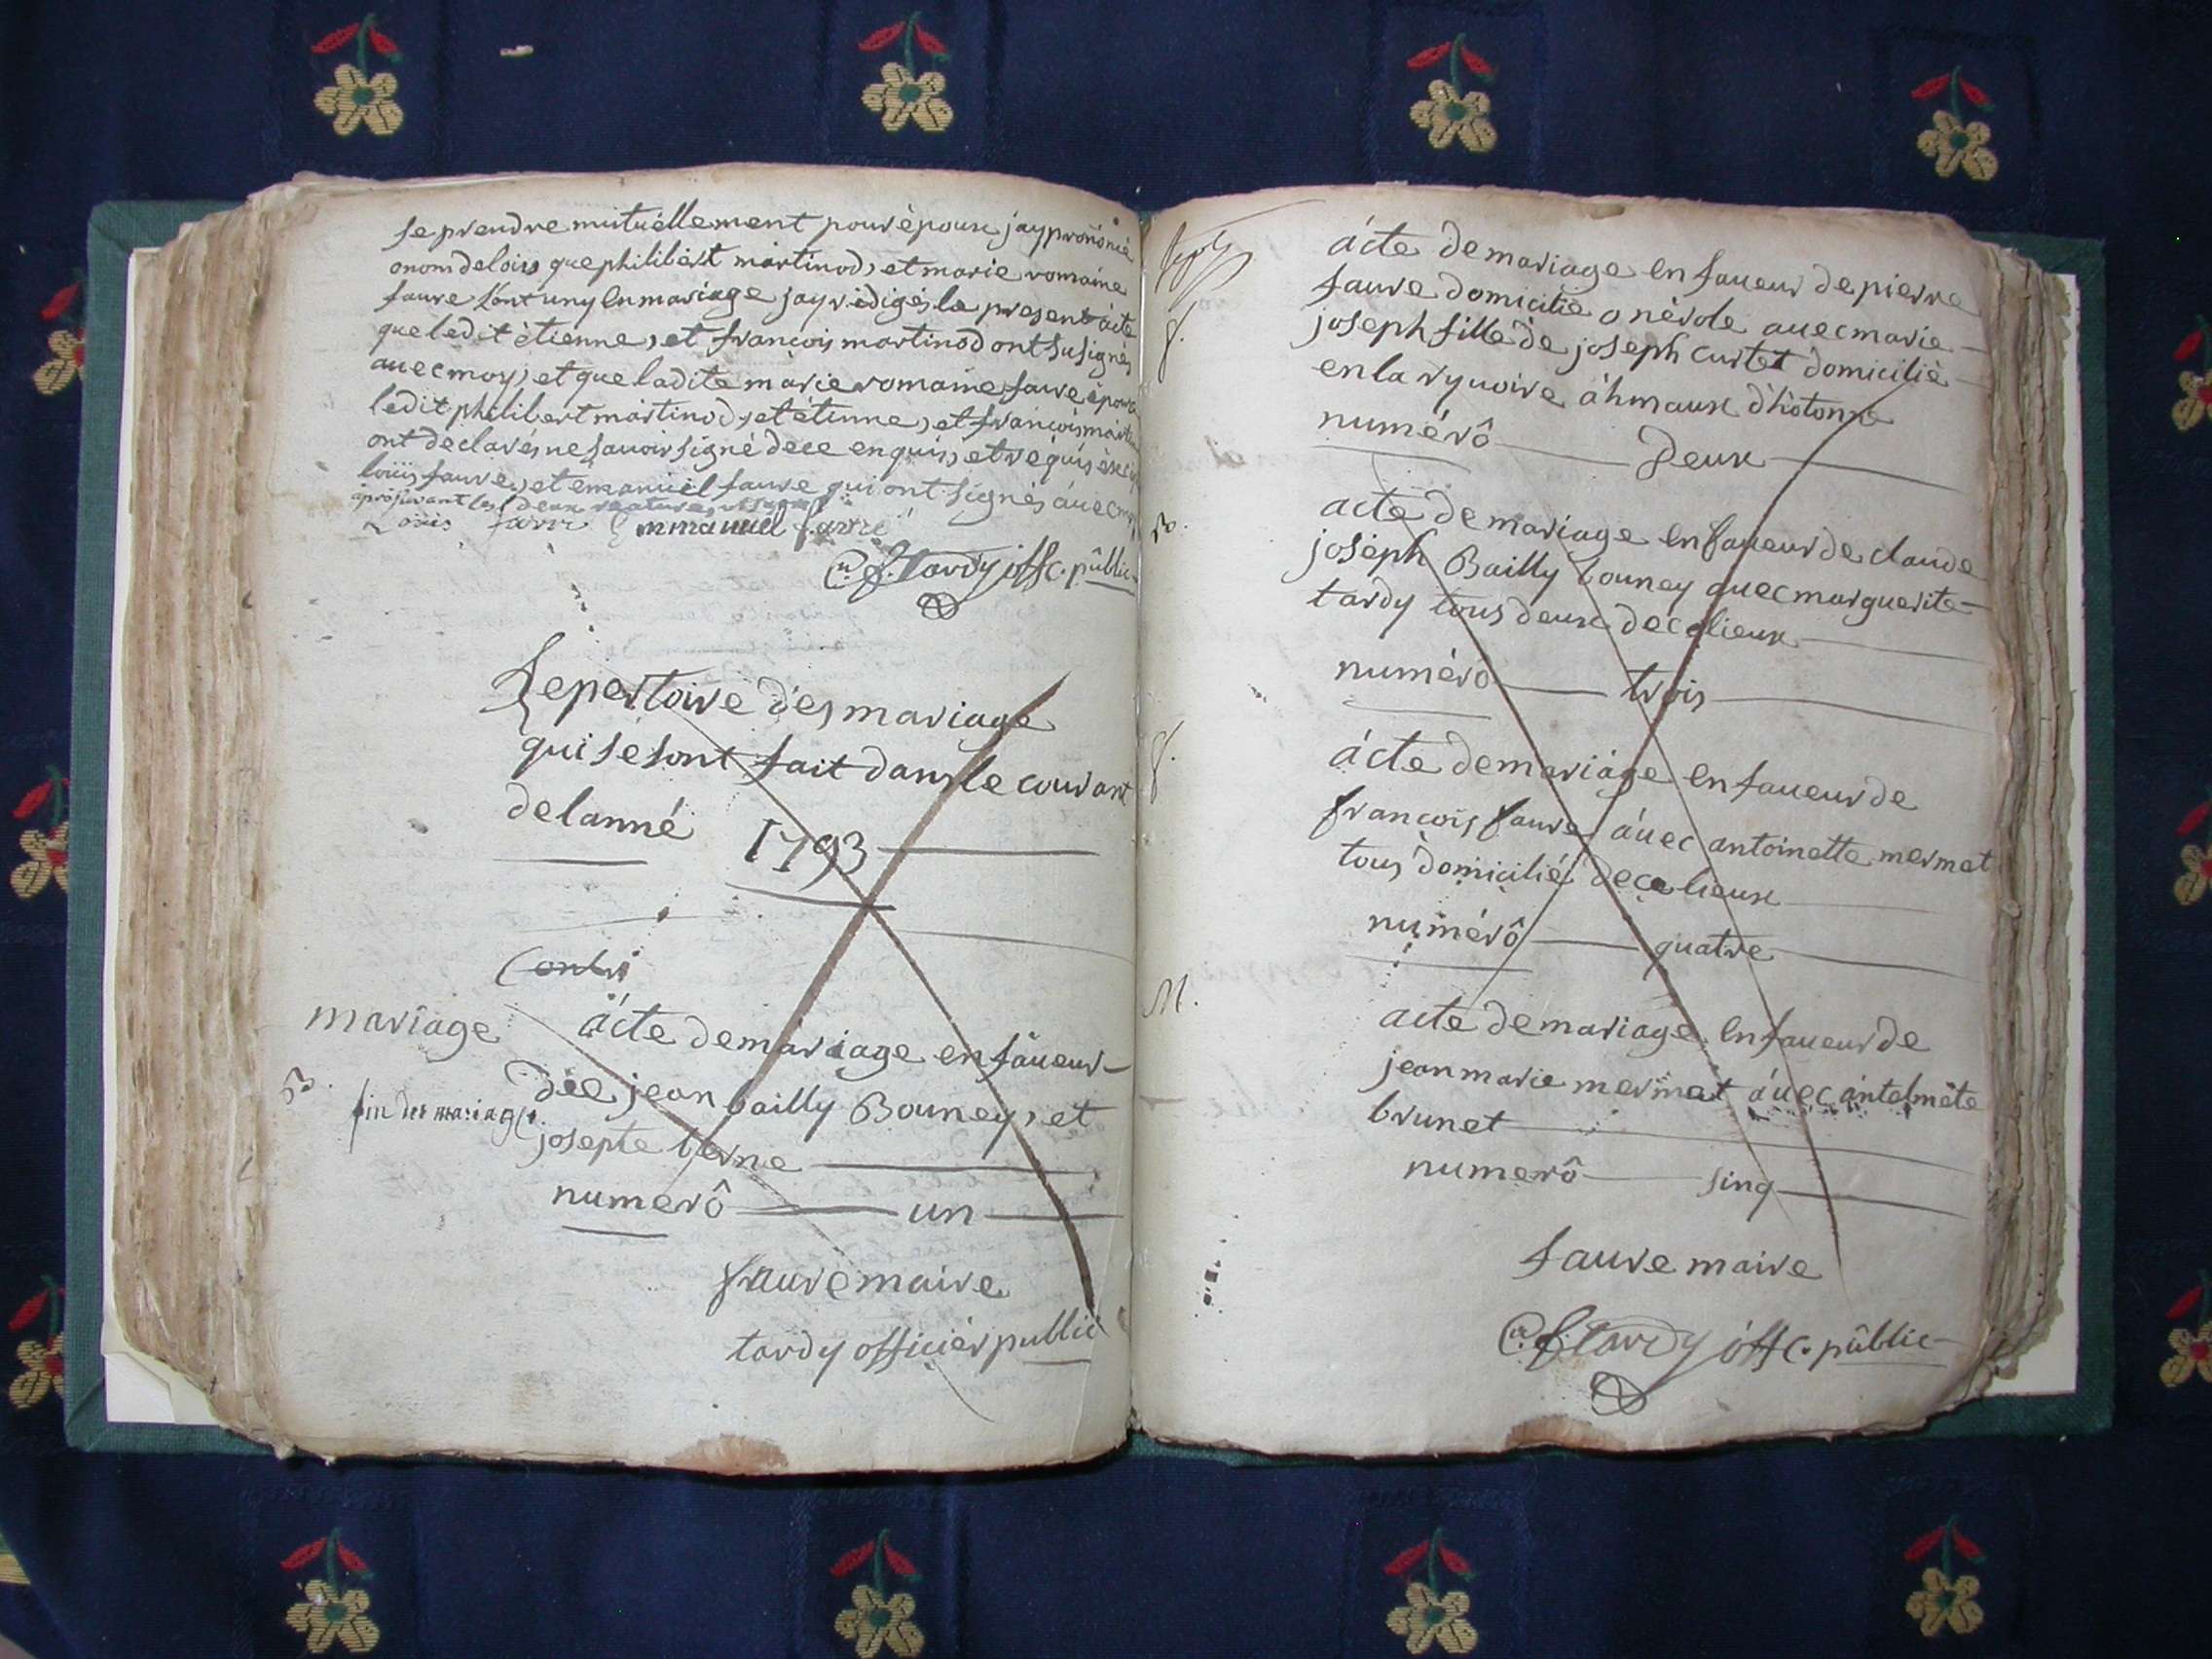 se prendre mutuéllement pour époux jay prononcé
o nom de loix que philibért martinod, et marie romaine
faure sont uny en mariage jay rédigés le present ácte
que ledit étienne, et francois martinod ont susignes
auec moy, et que ladite marie romaine faure épouse
ledit philibert martinod, et étinne, et francois martinod
ont déclarés ne sauoir signé de ce enquis, et requis
loüis faure, et emanuél faure qui ont signés áuec moy
aprouvant les deux
Louis favre Emmanuel favre
tardy offc. públic
Repertoire des mariage
qui se sont fait dans le courant
de lanné 1793
mariage
ácte de mariage en faueur
dee jean bailly Bouney, et
B.
fin des mariage
josepte berne
numerô un
faure maire
tardy officiér public
ácte de mariage en faueur de pierre
faure domicilié o nérole auec marie
joseph fille de joseph curtet domicilié
8.
en la ryuoire áhmaux dhótonne
numérô Deux
B.
acte de mariage en faueur de claude
joséph Bailly bouney auec marguerite
tardy tous deux de ce lieux
numérô trois
f.
ácte de mariáge en faueur de
francois faure áuec antoinette mermet
tous domicilié de ce lieux
numérô quatre
M.
acte de mariage en faueur de
jean marie mermet áuec ántelméte
brunet
numerô sinq
faure maire
tardy óffc. públic